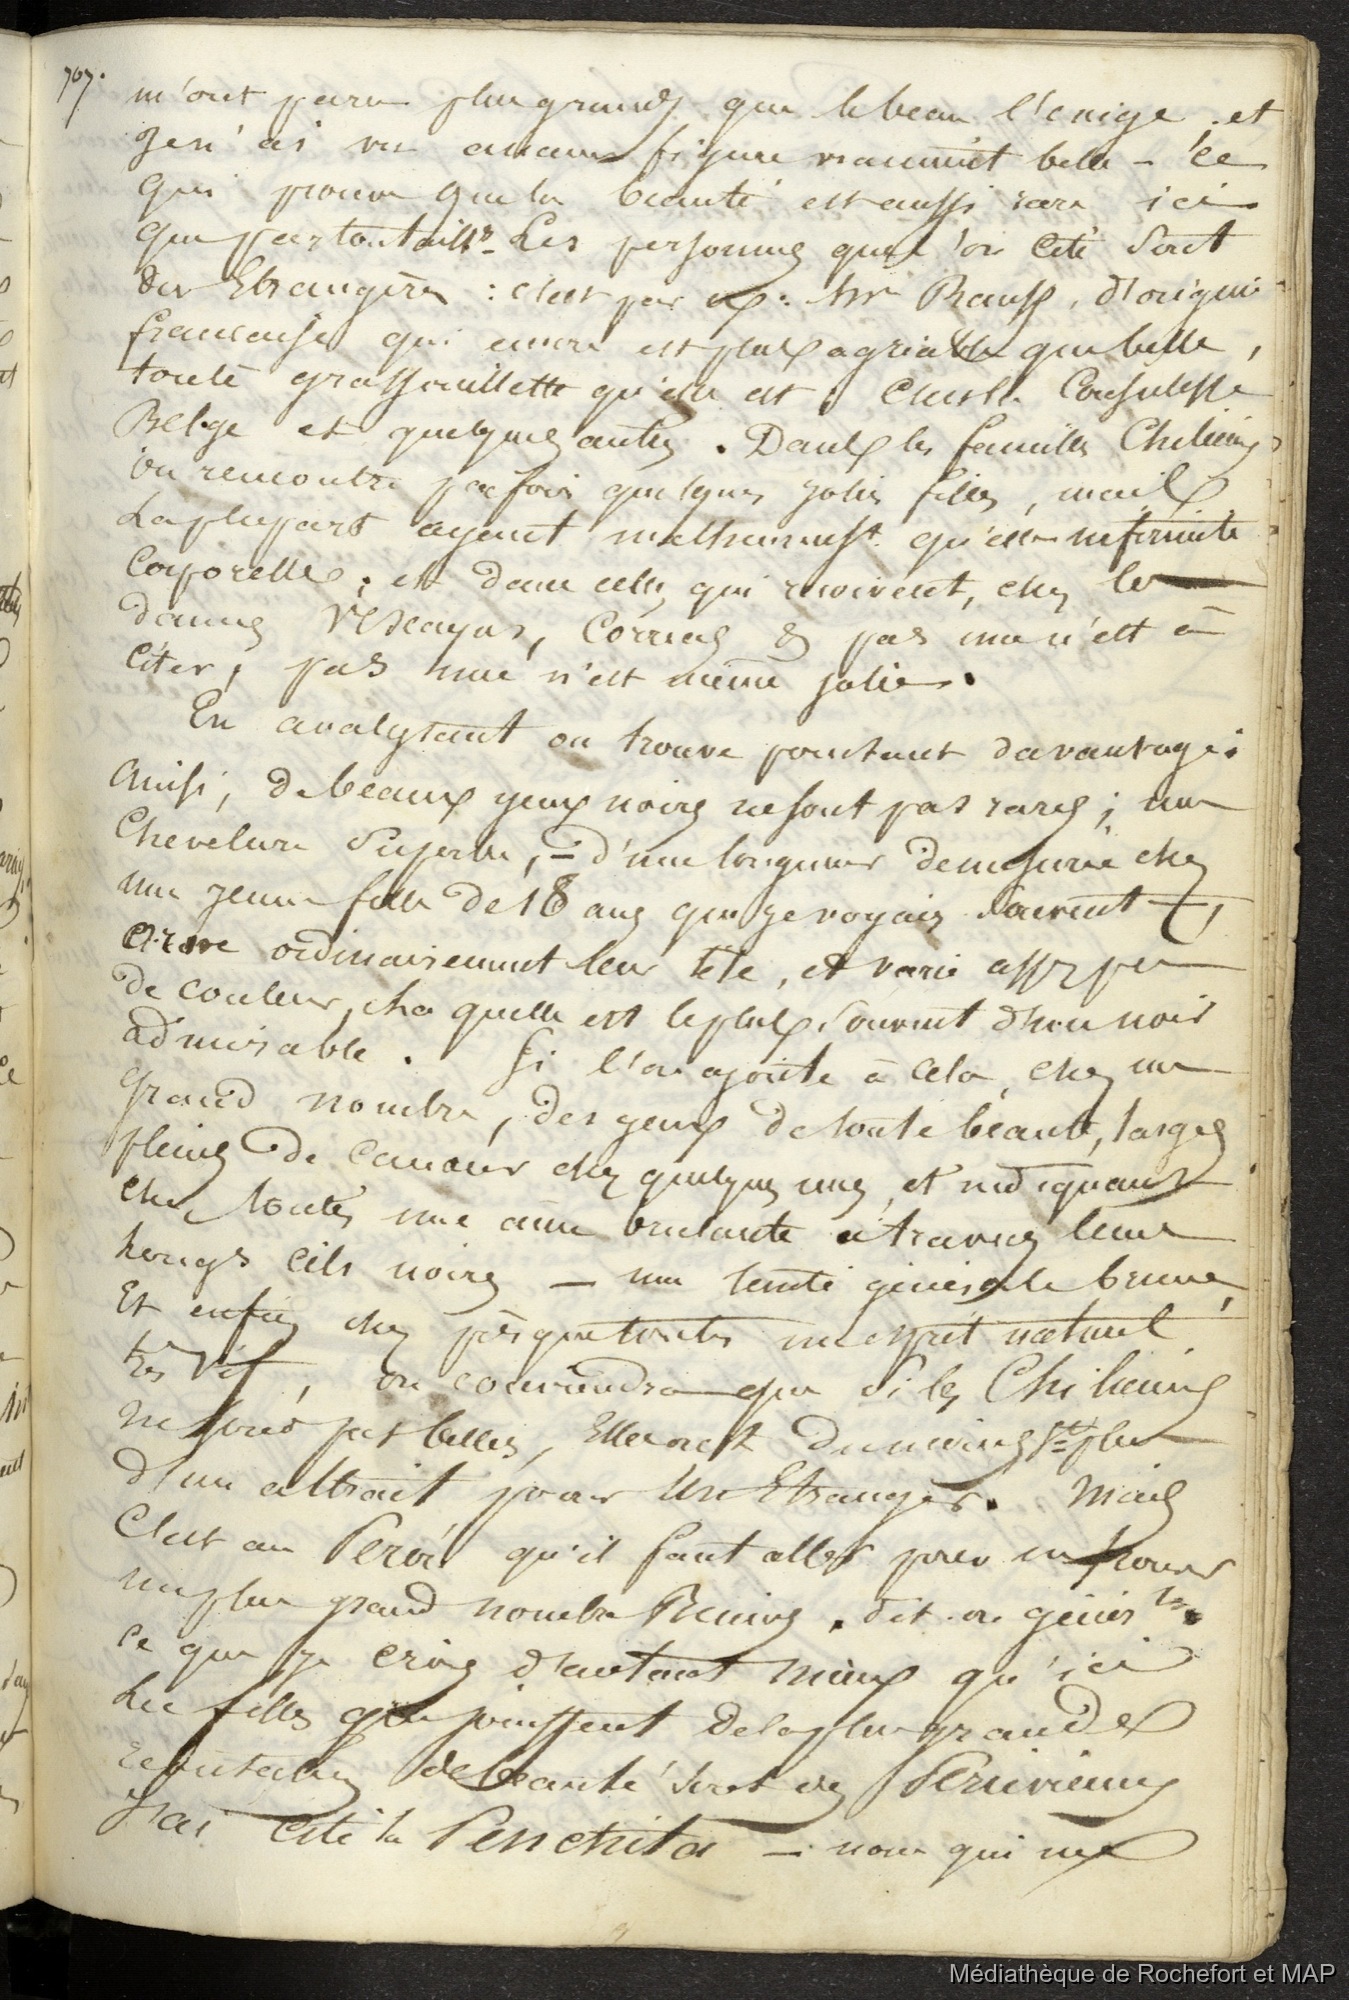 707.
m'ont paru plus grands que le beau l'exige, et
Je n'ai vu aucune figure vraiment belle - ce
qui prouve que la beauté est aussi rare ici
que partout aillrs - Les personnes que l'on cite sont
des Etrangères : c'est par ex: Mme d'origine
française qui encore est plus agréable que belle,
toute grassouillette qu'elle est ; c'est la Consulesse
Belge et quelques autres. Dans les familles Chiliennes
on rencontre parfois quelques jolies filles, mais
la plupart ayant malheureust quelque infirmité
corporelle ; et dans celles qui reçoivent, chez les
dames Correas & pas une n'est à
citer, pas une n'est même jolie.
En analysant on trouve pourtant davantage :
Ainsi, de beaux yeux noirs ne sont pas rares ; une
Chevelure superbe, - d'une longueur démesurée chez
une jeune fille de 18 ans que je voyais souvent -,
orne ordinairement leur tête, et varie assez peu
de couleur, laquelle est le plus souvent d'un noir
admirable. Si l'on ajoute à cela, chez un
grand nombre, des yeux de toute beauté, larges
pleins de candeur chez quelques unes, et indiquant
chez toutes une âme brulante à travers leurs
longs cils noirs - une teinte générale brune,
Et enfin chez presque toutes un esprit naturel
très vif, on conviendra que si les Chiliennes
ne sont pas belles, Elles ont du moins plus
d'un attrait pour un Etranger. Mais
C'est au Pérou qu'il faut aller pour en trouver
un plus grand nombre Réunies, dit-on génért.
ce que je crois d'autant mieux qu'ici
les filles qui jouissent de la plus grande
réputation de beauté sont des Péruviennes
J'ai cité la Penchita - nom qui me